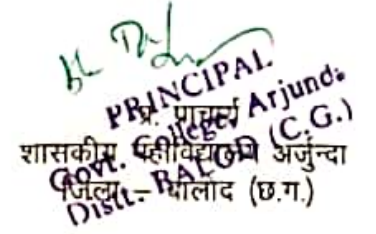 PRINCIPAL
Govt. College, Arjunda
Distt. - BALOD (C.G.)
प्र. प्राचार्य
शासकीय महाविद्यालय अर्जुन्दा
जिला – बालोद (छ.ग.)